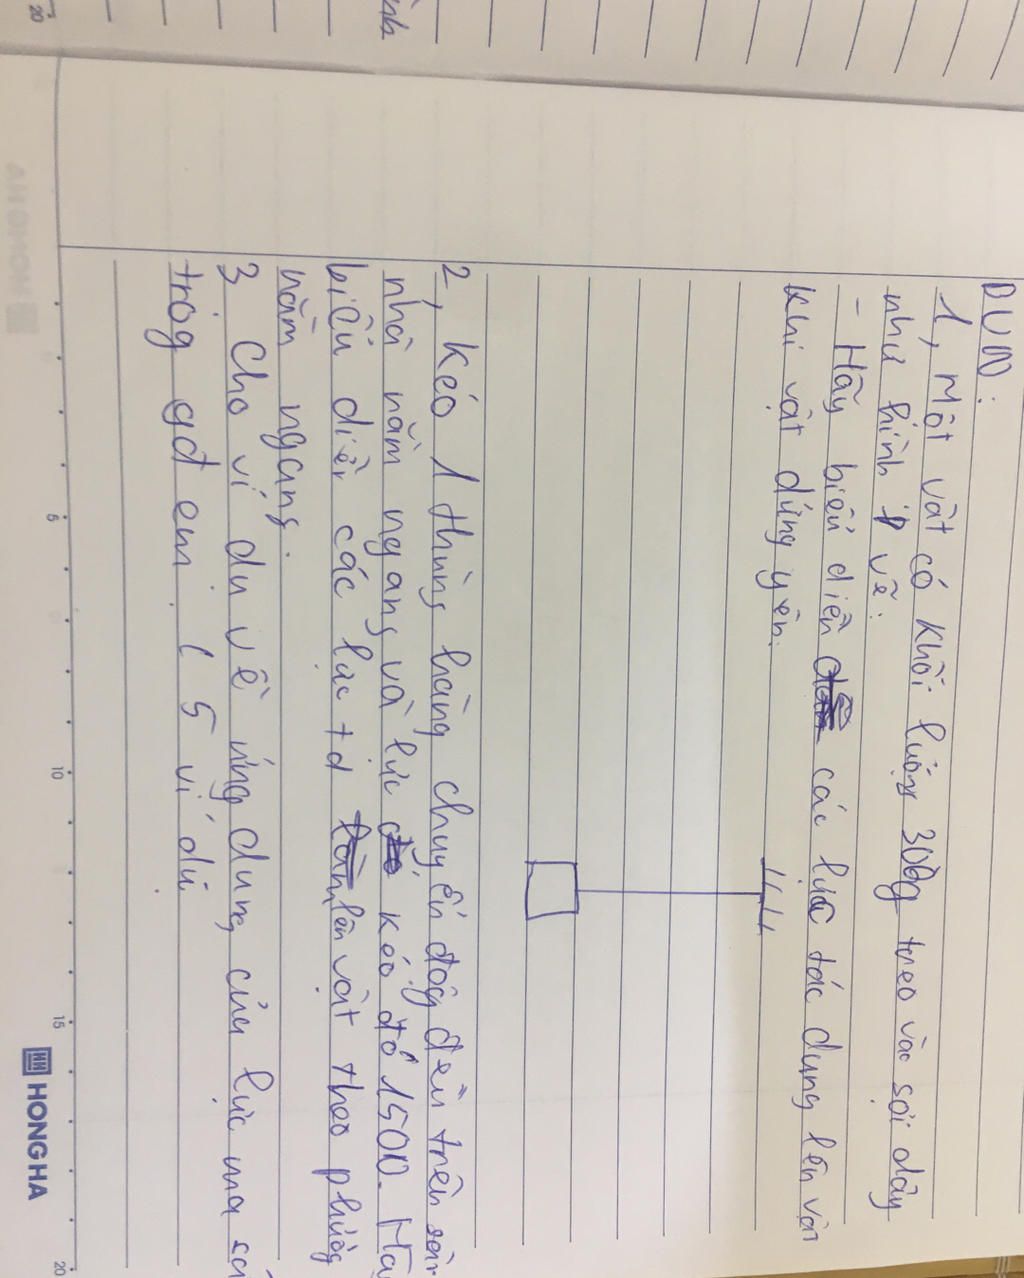 BVN:
1, Một vật có khối lượng 300g treo vào sợi dây
như hình vẽ:
- Hãy biểu diễn các lực tác dụng lên vận
khi vật đúng yên.
2, Kéo 1 thùng hàng chuyển động đều trên sàn
nhà nằm ngang và lực kéo đó 1500. Hãy
biểu diễn các lực td lên vật theo phương
nằm ngang.
3, Cho ví dụ về ứng dụng của lực ma sá
trog gđ em. ( 5 ví dụ
5
10
15
20
HONG HA
20